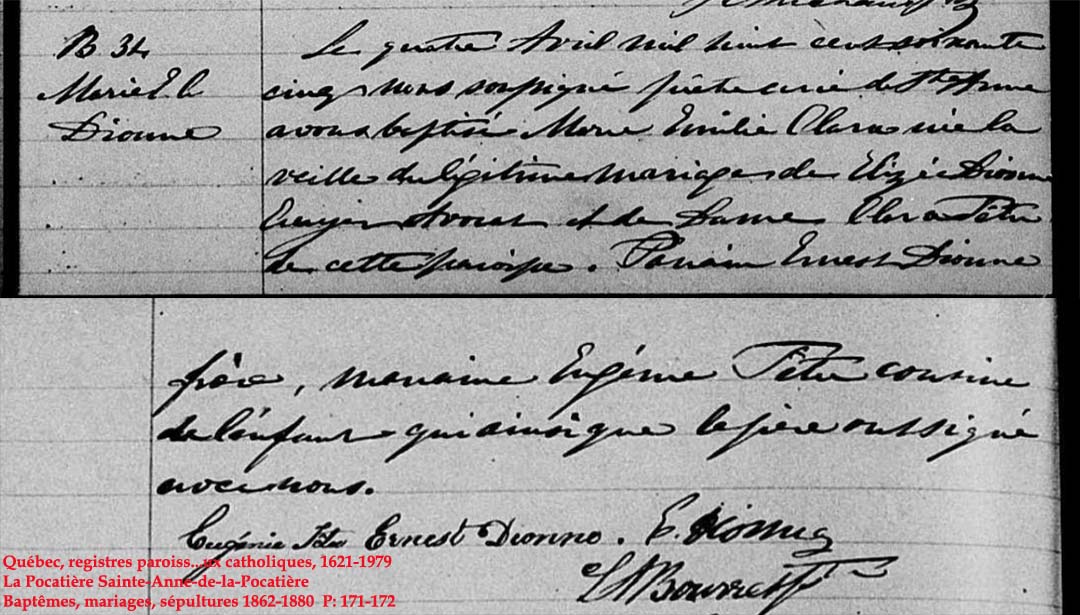 B 34
Marie E C
Dionne
Le quatre Avril mil huit cent soixante
cinq nous soussigné prêtre curé de Ste Anne
avons baptisé Marie Emilie Clara née la
veille du légitime mariage de Elizée Dionne
Ecuyer Avocat et de Dame Clara Têtu
de cette paroisse. Parrain Ernest Dionne
frère, marraine Eugénie Têtu cousine
de l'enfant qui ainsi que le père ont signé
avec nous.
Eugénie Têtu Ernest Dionne. E. Dionne
Bourret Ptre
Québec, registres paroiss...ux catholiques, 1621-1979
La Pocatière Sainte-Anne-de-la-Pocatière
Baptêmes, mariages, sépultures 1862-1880 P: 171-172